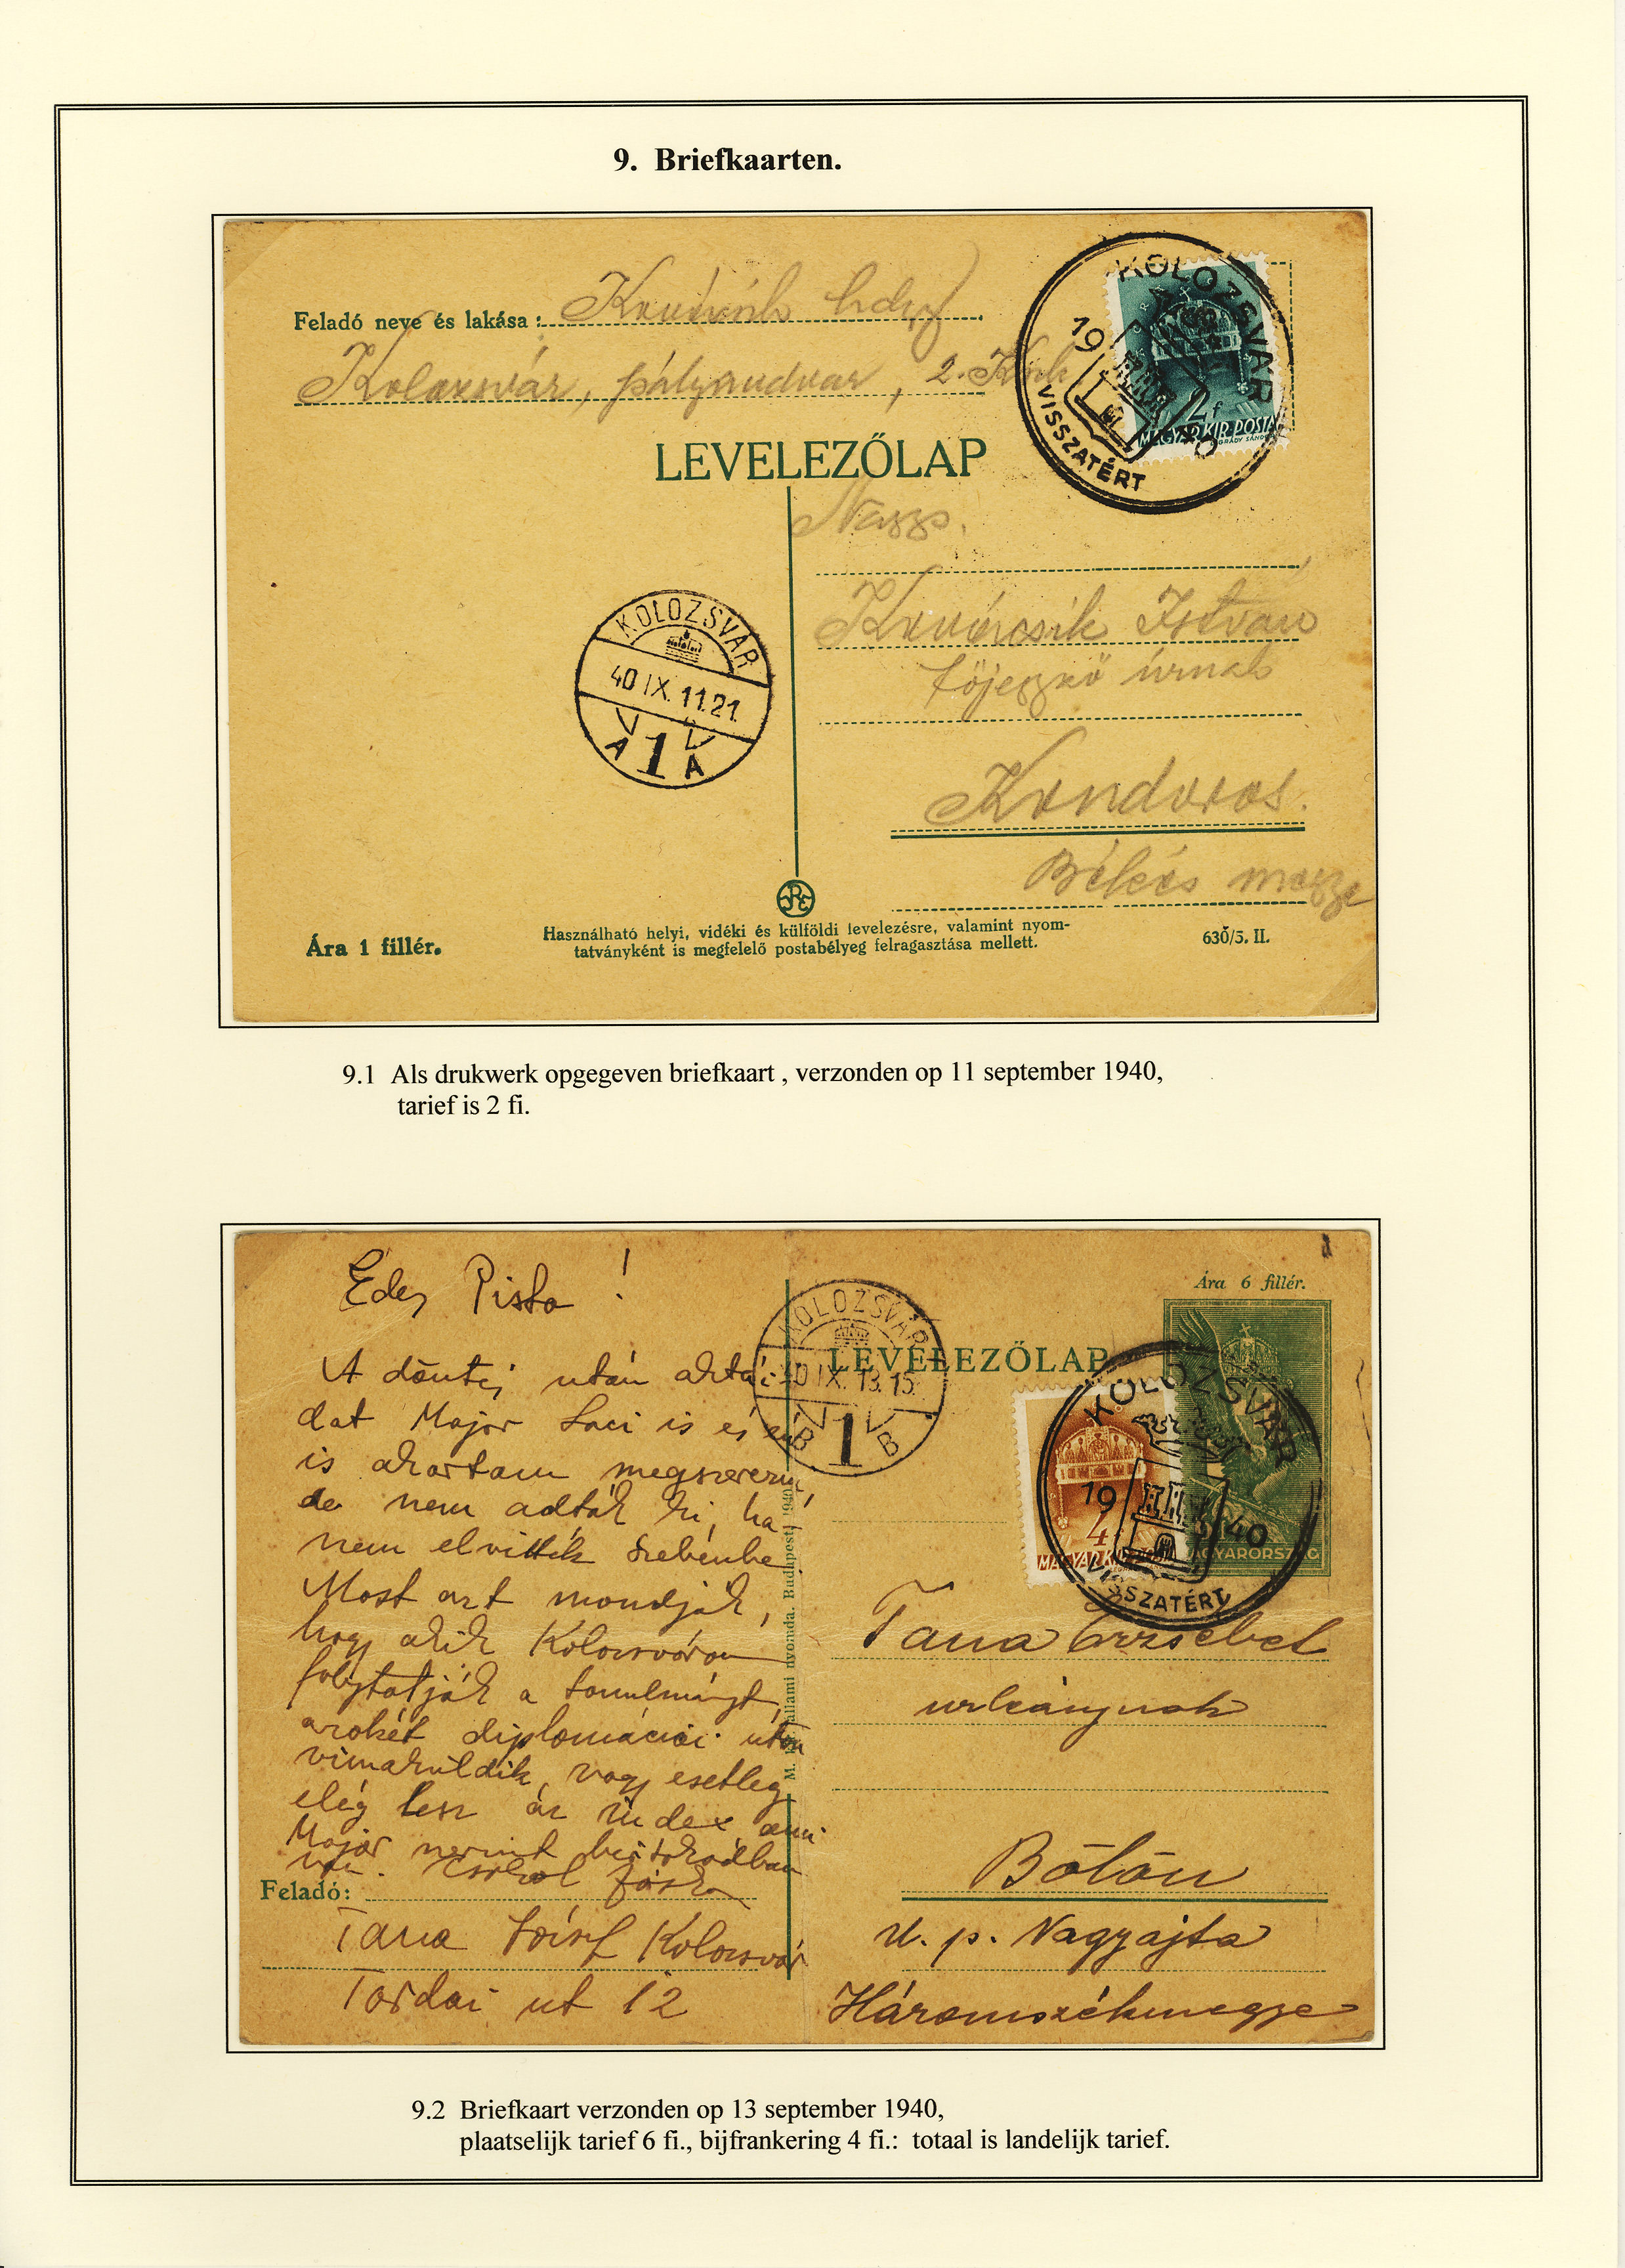 9. Briefkaarten.
Feladó neve és lakása:
Kolozsvár, pályaudvar, 2.
KOLOZSVÁR
1940
VISSZATÉRT
2f
MAGYAR KIR. POSTA
LÉGRÁDY SÁNDOR
LEVELEZŐLAP
Nags.
Kovácsik István
főjegyző úrnak
Kondoros.
Békés megye
KOLOZSVÁR
40 IX. 11.21.
A 1 A
Ára 1 fillér.
Használható helyi, vidéki és külföldi levelezésre, valamint nyom-
tatványként is megfelelő postabélyeg felragasztása mellett.
630/5. II.
9.1 Als drukwerk opgegeven briefkaart , verzonden op 11 september 1940,
tarief is 2 fi.
Édes Pista !
A döntés után aktái-
dat Major Laci is és én
is akartam megszerezni,
de nem adták ki, ha-
nem elvitték Szebenbe
Most azt mondják,
hogy akik Kolozsváron
folytatják a tanulmányt,
azokét diplomáciai úton
vagy esetleg
elég lesz az index ami
Major szerint birtokodban
van. Csókol Jóska
Feladó:
Tana József Kolozsvár
Tordai ut 12
KOLOZSVÁR
40 IX. 13.15.
B 1 B
Ára 6 fillér.
LEVELEZŐLAP
MAGYARORSZÁG
4
MAGYAR KIR. POSTA
KOLOZSVÁR
1940
VISSZATÉRT
M. kir. állami nyomda. Budapest. 1940.
Tana Erzsébet
urleánynak
Bölön
u. p. Nagyajta
Háromszékmegye
9.2 Briefkaart verzonden op 13 september 1940,
plaatselijk tarief 6 fi., bijfrankering 4 fi.: totaal is landelijk tarief.